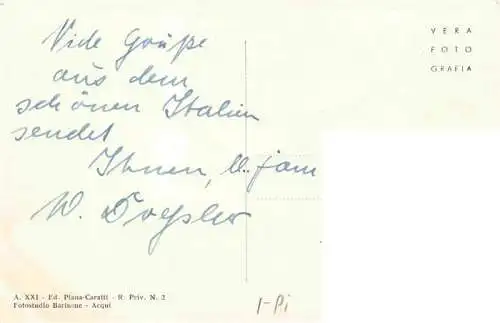 Viele Grüße
aus dem
schönen Italien
sendet
Ihnen, u. fam
W.
VERA
FOTO
GRAFIA
A. XXI - Ed. Piana-Caratti - R. Priv. N. 2
Fotostudio Barisone - Acqui
1-Pi